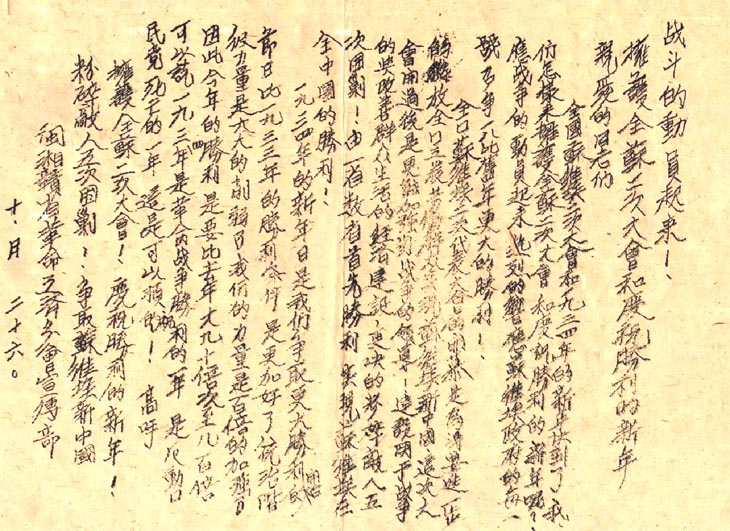 战斗的動員起来！
擁護全蘇二次大會和慶祝勝利的新年
親愛的同志们
全國蘇維埃二次大會和一九三四年的新年快到了，我
们怎樣来擁護全蘇二次大會和慶祝勝利的新年呢？
應战爭的動員起来 熱烈的 蘇維埃政府的
號召爭 比舊年更大的勝利！
全口蘇維埃二次代表大会的 是為 要進一步
的 放全口 蘇維埃新中國，這次大
會開過後是更能加強对战爭的領導！這說明于战爭
的與改善群众生活的經濟建設，更決的粉碎敵人五
次囲剿！由一省数省首先勝利 实現蘇維埃在
全中國的勝利！
一九三四年的新年日是我们爭取更大勝利的
節日比一九三三年的勝利条件是更加好了統治階
级力量是大大的削弱日我们的力量是百倍的加强日
因此今年的勝利是要比去年大九十倍 至几百倍
可以說一九三四年是革命战爭勝利的一年 是反動口
民党死亡的一年 這是可以預祝的！ 高呼
擁護全蘇二次大會！ 慶祝勝利的新年！
粉碎敵人五次囲剿！ 争取蘇維埃新中國
閩湘贛省革命互济会 宣傳部
十、月 二十六。